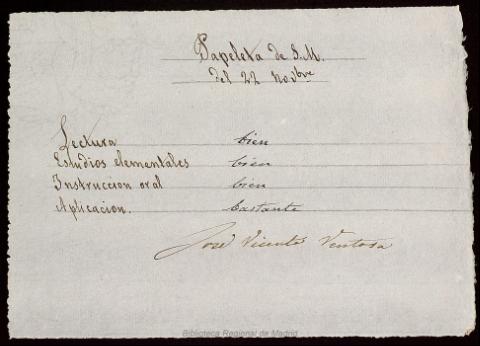 Papeleta de S.M.
del 22 Novbre
Lectura bien
Estudios elementales bien
Instruccion oral bien
Aplicacion. bastante
José Vicente Ventosa
Biblioteca Regional de Madrid